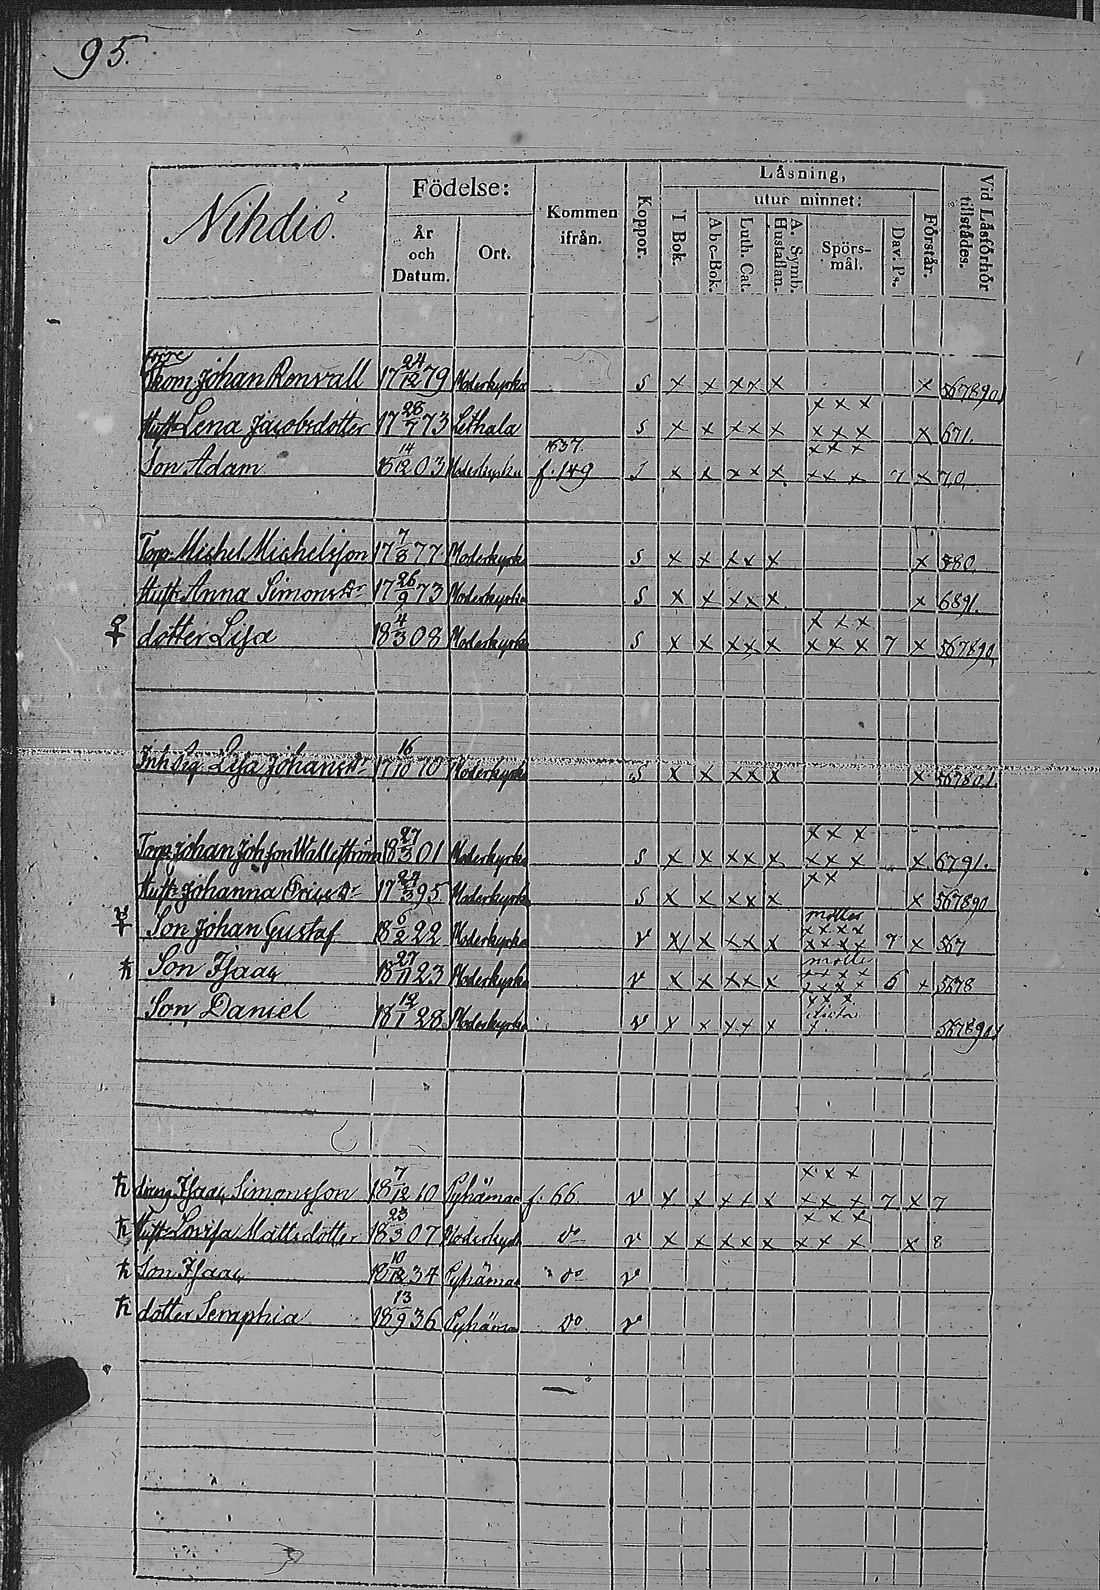 95.
Nihdiö
Födelse:
År och Datum.
Ort.
Kommen ifrån.
Koppor.
Läsning,
I Bok.
utur minnet:
Abc-Bok.
Luth. Cat.
A. Symb. Hustaflan.
Spörs-mål.
Dav. Ps.
Förstår.
Vid Läsförhör tillstädes.
Johan Renvall 17 24/12 79 Moderkyrka S x x x x x x 567890
x x x
Hust. Lena Jacobsdotter 17 26/7 73 Lethala S x x x x x x x x x 671.
1837. x x x
Son Adam 18 14/12 03 Moderkyrka f. 149 x x x x x x x x 7 x 70
Torp. Michel Michelsson 17 7/3 77 Moderkyrka S x x x x x x 580
Hust. Anna Simonsdr 17 26/9 73 Moderkyrka S x x x x x x 6891.
x x x
♀ dotter Lisa 18 4/3 08 Moderkyrka S x x x x x x x x 7 x 567890
Inh. Lisa Johansdr 17 16/10 70 Moderkyrka S x x x x x x 567801.
x x x
Torp. Johan Johsson Wallström 18 27/3 01 Moderkyrka S x x x x x x x x x 6791.
x x
Hust. Johanna 17 24/3 95 Moderkyrka S x x x x x x 567890
x x x x
Son Johan Gustaf 18 6/2 22 Moderkyrka V x x x x x x x x x 7 x 567
x x x x
ħ Son Isaac 18 27/11 23 Moderkyrka V x x x x x x x x x 6 x 5678
x x x
Son Daniel 18 12/1 28 Moderkyrka V x x x x x x
x x x
ħ dreng Isaac Simonsson 18 7/12 10 Pyhämaa f. 66. V x x x x x x x x 7 x 7
x x x
ħ Hust. Lovisa Mattsdotter 18 23/3 07 Moderkyrk do V x x x x x x x x x 8
ħ Son Isaac 18 10/12 34 Pyhämaa do V
ħ dotter Seraphia 18 13/9 36 Pyhämaa do V